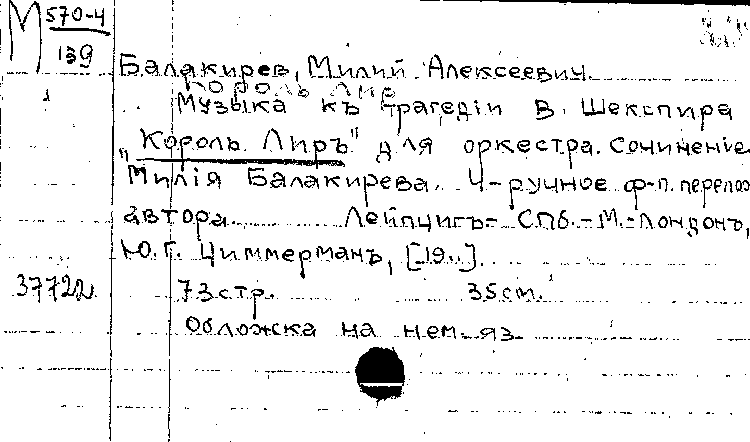 М 570-4
139
Балакирев, Милий Алексеевич.
Король Лир
1
Музыка къ трагедіи В. Шекспира
"Король Лиръ" для оркестра. Сочиненіе
Милія Балакирева. 4-ручное ф-п. перелож
автора. Лейпцигъ- СПб.-М.-Лондонъ,
Ю.Г. Циммерманъ, [19..].
37722
73стр. 35см.
Обложка на нем. яз